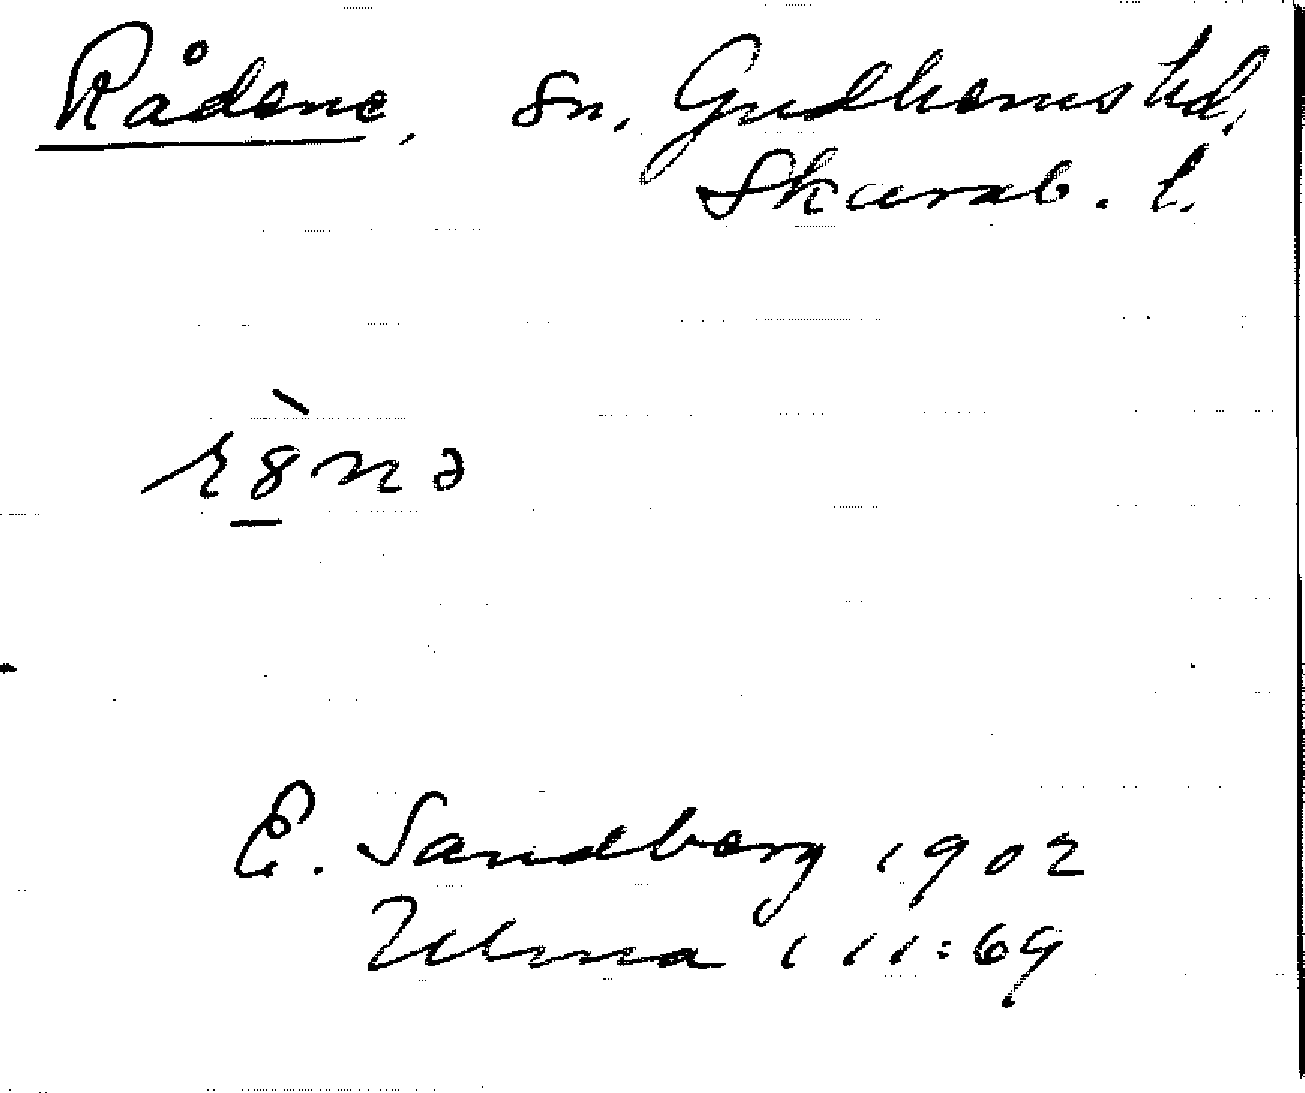 Rådene, sn, Gudhems hd,
Skarab. l.
r8nə
E. Sandberg 1902
Ulma 111:69